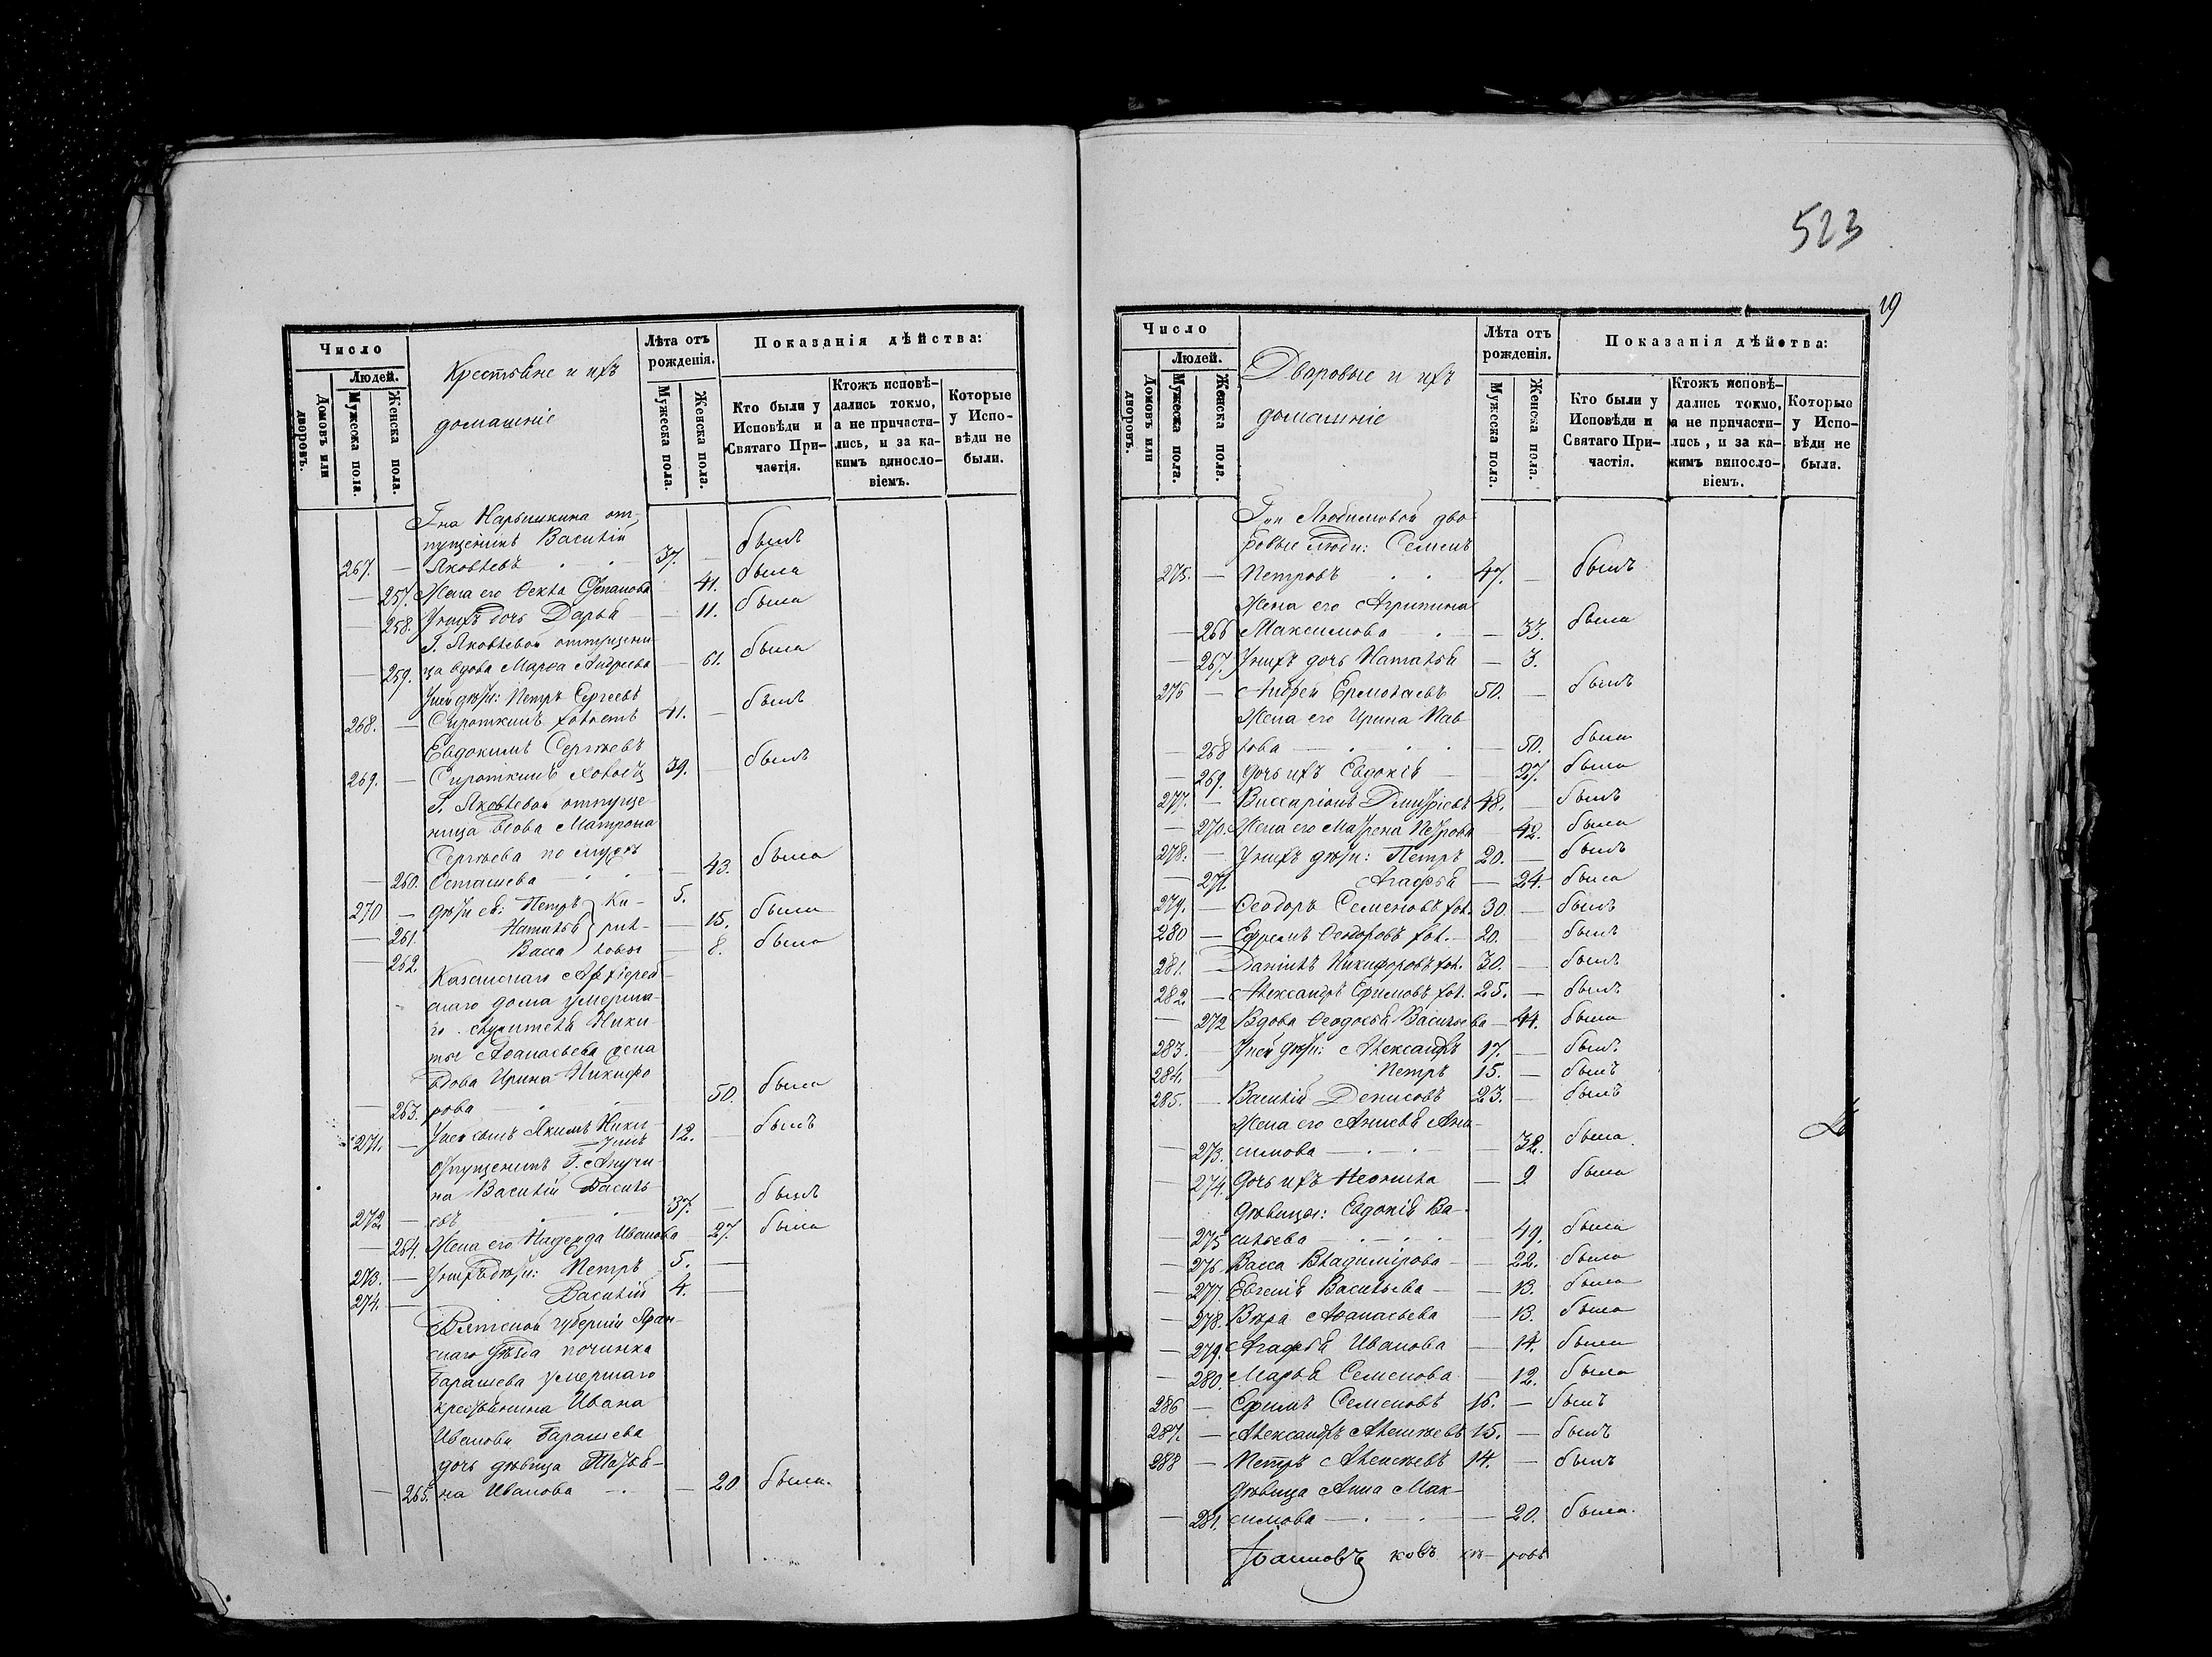 Число
Людей.
Домовъ или дворовъ.
Мужеска пола.
Женска пола.
Крестьяне и ихъ
домашніе
Лѣта отъ рожденія.
Мужеска пола.
Женска пола.
Показанія дѣйства:
Кто были у Исповѣди и Святаго Причастія.
Ктожъ исповѣдались токмо, а не причастились, и за какимъ винословіемъ.
Которые у Исповѣди не были.
Гна Нарышкина от-
пущеникъ Василій
267. — Яковлевъ 37. — былъ
— 257. Жена его Ѳекла Степанова 41. была
— 258. У нихъ дочь Дарья — 11. была
Г. Яковлевой отпущени-
— 259. ца вдова Марѳа Андреева — 61. была
У ней дѣти: Петръ Сергеевъ
268. — Сироткинъ холостъ 41. — былъ
Евдокимъ Сергѣевъ
269. — Сироткинъ холостъ 39. — былъ
Г. Яковлевой отпуще-
ница вдова Матрона
Сергѣева по мужѣ
— 260. Осташева — 43. была
270 — Дѣти ея: Петръ Ки- 5.
— 261. Наталья рил- — 15. была
— 262. Васса ловы — 8. была
Казанскаго Архіерей-
скаго дома умерша-
го служителя Ники-
ты Аѳанасьева жена
вдова Ирина Никифо
— 263. рова 50. была
271. — У нея сынъ Якимъ Ники-
тинъ 12. — былъ
Отпущеникъ Г. Апучи-
на Василій Василь-
272 — евъ 37. — былъ
— 264. Жена его Надежда Иванова 27. была
273. — У нихъ дѣти: Петръ 5. —
274. — Василій 4. —
Вятской губерніи Яран-
скаго уѣзда починка
Барашева умершаго
крестьянина Ивана
Иванова Барашева
дочь дѣвица Татья-
— 265. на Иванова — 20 была.
523
19
Число
Людей.
Домовъ или дворовъ.
Мужеска пола.
Женска пола.
Дворовые и ихъ
домашніе
Лѣта отъ рожденія.
Мужеска пола.
Женска пола.
Показанія дѣйства:
Кто были у Исповѣди и Святаго Причастія.
Ктожъ исповѣдались токмо, а не причастились, и за какимъ винословіемъ.
Которые у Исповѣди не были.
Гжи Любимовой дво
ровые люди: Семенъ
275. — Петровъ 47. — былъ
Жена его Агрипина
— 266 Максимова — 33. была
— 267. У нихъ дочь Наталья — 3.
276 — Андрей Ермолаевъ 50. — былъ
Жена его Ирина Пав
— 268 лова — 50. была
— 269. Дочь ихъ Евдокія — 27. была
277. — Виссаріонъ Димитріевъ 48. — былъ
— 270. Жена его Матрена Петрова — 42. была
278. — У нихъ дѣти: Петръ 20. — былъ
— 271. Агафья — 24. была
279. — Ѳеодоръ Семеновъ хол. 30 — былъ
280 — Ефремъ Ѳеодоровъ хол. — 20. — былъ
281. — Даніилъ Никифоровъ хол. 30. — былъ
282. — Александръ Ефимовъ хол. 25. — былъ
— 272 Вдова Ѳеодосья Васильева — 44. была
283. — У ней дѣти: Александръ 17. — былъ
284. — Петръ 15. — былъ
285. — Василій Денисовъ 23. — былъ
Жена его Анисья Ани-
— 273. симова — 32. была.
— 274. Дочь ихъ Неонила — 9 была
Дѣвицы: Евдокія Ва-
— 275 сильева — 49. была
— 276. Васса Владимірова — 22. была
— 277. Евгенія Васильева — 13. была
— 278. Вѣра Аѳанасьева — 13. была
— 279. Агафья Иванова — 14. была
— 280. Марья Семенова — 12. была
286 — Ефимъ Семеновъ 16. — былъ
287. — Александръ Алексѣевъ 15. — былъ
288 — Петръ Алексѣевъ 14. — былъ
Дѣвица Анна Мак-
— 281. симова — 20. была.